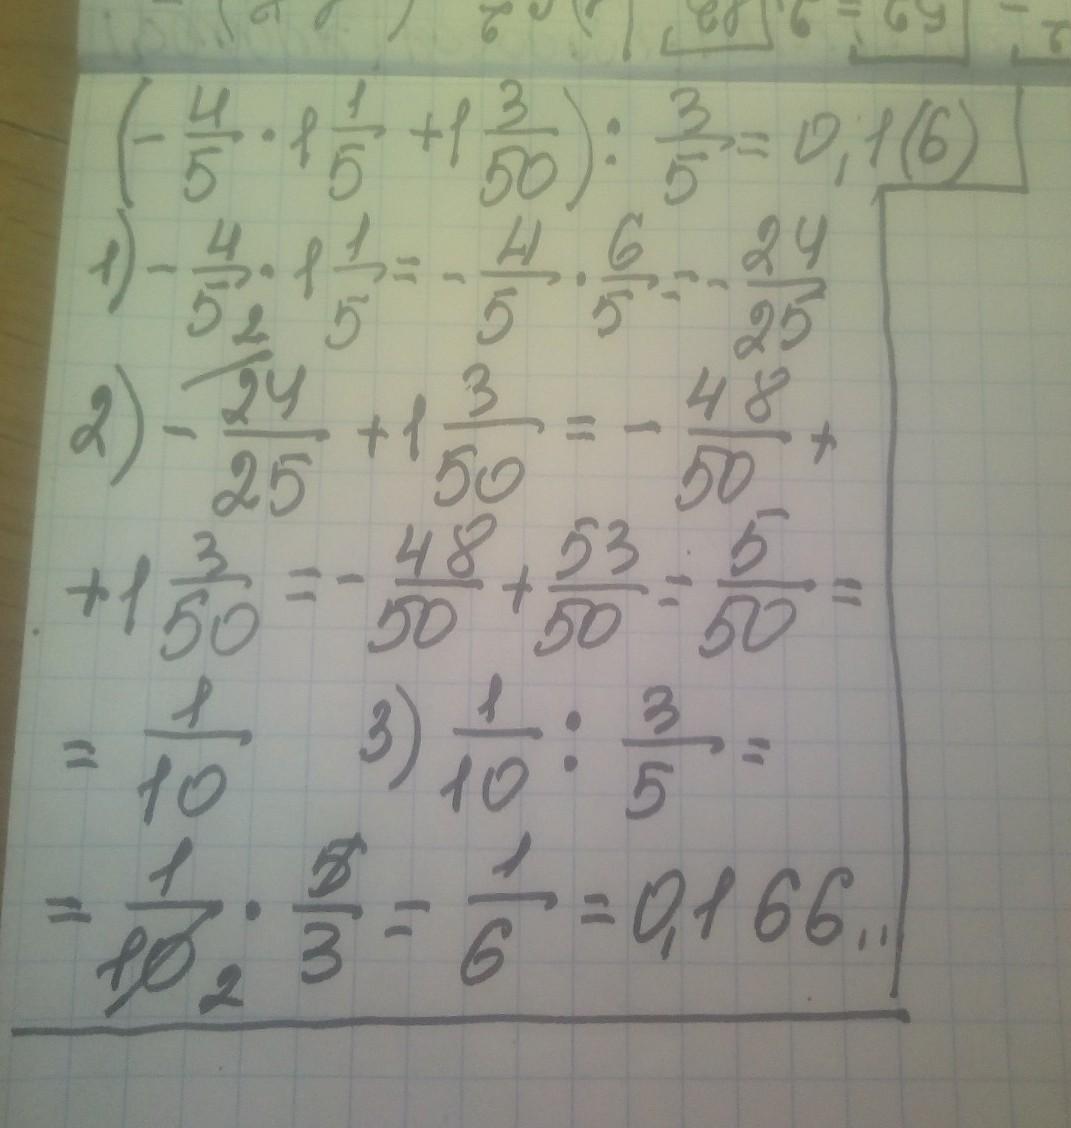 (- 4/5 · 1 1/5 + 1 3/50) : 3/5 = 0,1(6)
1) - 4/5 · 1 1/5 = - 4/5 · 6/5 = - 24/25
2) - 24/25 + 1 3/50 = - 48/50 +
+ 1 3/50 = - 48/50 + 53/50 = 5/50 =
= 1/10 3) 1/10 : 3/5 =
= 1/10 2 · 5/3 = 1/6 = 0,166..